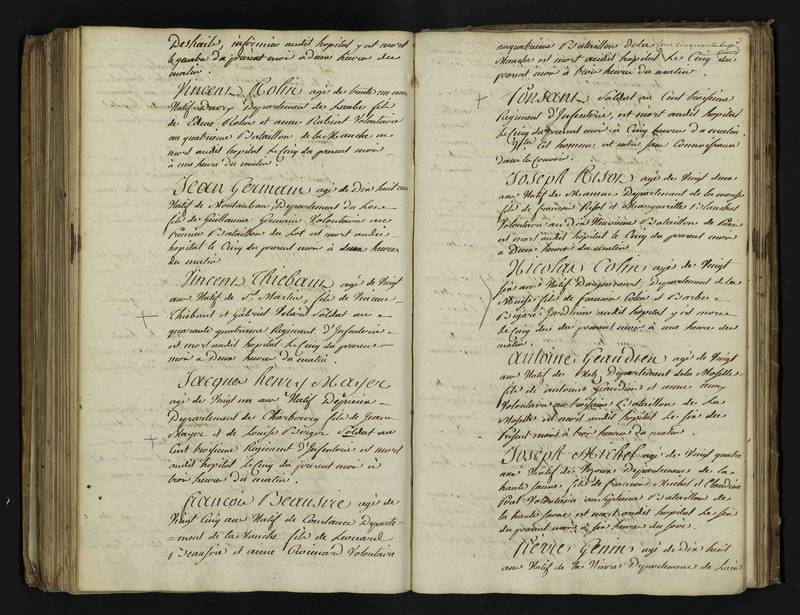 Deshaile, infirmier audit hopital y est mort
le quatre du present mois à deux heures du
matin.
Vincent Colin agé de trente un ans
Natif D'avry Departement de Laube fils
de Edme Colin et anne Rabiat Volontaire
au quatrieme Bataillon de la Manche est
mort audit hopital le Cinq du present mois
à une heure du matin.
Jean Germain agé de Dix huit ans
Natif de Montauban Departement du Lot
fils de Guillaume Germain Volontaire au
premier Bataillon du Lot est mort audit
hopital le Cinq du present mois à deux heures
du matin
Vincent Thiebaut agé de Vingt
ans Natif de St. Martin, fils de Vincent
Thiebaut et Gabriel Volontaire Soldat au
quarante quatrieme Regiment d'Infanterie
est mort audit hopital le Cinq du present
mois à Deux heures du matin.
Jacques henry Mayer
agé de Vingt un ans Natif
Departement de Cherbourg fils de Jean
Mayer et de Louise Berger Soldat au
Cent troisieme Regiment d'Infanterie est mort
audit hopital le Cinq du present mois à
trois heures du matin.
François Beausire agé de
Vingt Cinq ans Natif de Constance Departe-
-ment de la Manche fils de Leonard
Beausire et anne Volontaire
auquatrieme Bataillon de la
Manche est mort audit hopital le Cinq du
present mois à trois heures du matin.
Ponsant Soldat au Cent troisieme
Regiment d'Infanterie, est mort audit hopital
le Cinq du present mois à Cinq heures du matin.
Cet homme est entré sans Connoissance
dans la Convoi.
Joseph Pison agé de Vingt deux
ans Natif de Departement de la meuse
fils de francois Pison et Blanchet
Volontaire au Dix Neuvieme Bataillon de
est mort audit hopital le Cinq du present mois
à Deux heures du matin
Nicolas Colin agé de Vingt
six ans Natif Departement de la
Meuse fils de francois Colin et Barbe
infirmier audit hopital y est mort
le Cinq du present mois à une heure du
matin.
Antoine Giaudien agé de Vingt
ans Natif de Metz Departement de la Moselle
fils de antoine Giaudien et anne
Volontaire au troisieme Bataillon de La
Moselle est mort audit hopital le six du
present mois à trois heures du matin.
Joseph Michel agé de Vingt quatre
ans Natif de Departement de la
haute saone fils de francois Michel et Claudine
Volontaire au Bataillon de
la haute saone est mort audit hopital le six
du present mois à six heures du soir.
Pierre Genin agé de Dix huit
ans Natif de la Departement de Lain